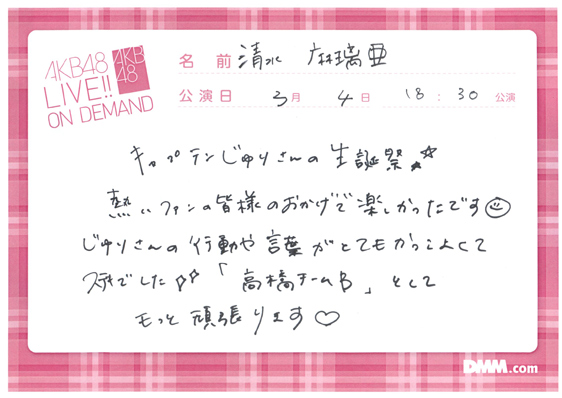 AKB48
LIVE!!
ON DEMAND
AKB
48
名 前 清水 麻璃亜
公演日 3月 4日 18:30 公演
キャプテンじゅりさんの生誕祭☆☆
熱いファンの皆様のおかげで楽しかったです☺
じゅりさんの行動や言葉がとてもかっこよくて
ステキでした♪♪「高橋チームB」として
もっと頑張ります♡
DMM.com